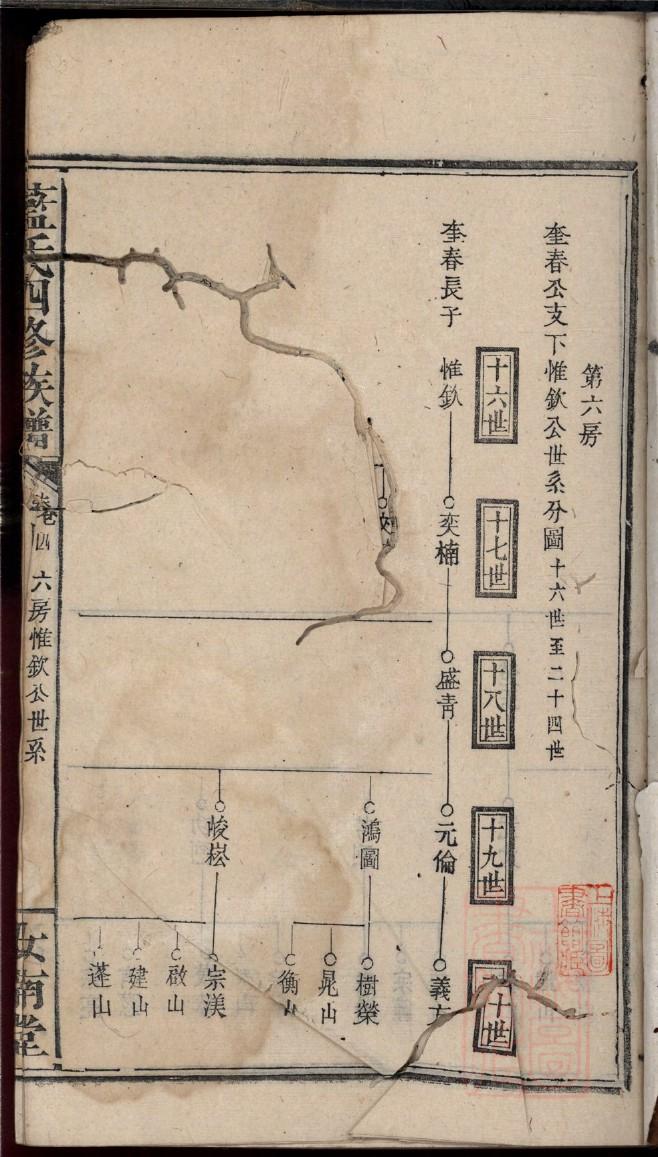 第六房
奎春公支下惟欽公世系分圖十六世至二十四世
十六世
十七世
十八世
十九世
十世
奎春長子
惟欽
奕楠
盛青
元倫
義方
鴻圖
樹榮
晁山
衡山
峻崧
宗渼
啟山
建山
蓬山
藍氏四修族譜
卷四
六房惟欽公世系
汝南堂